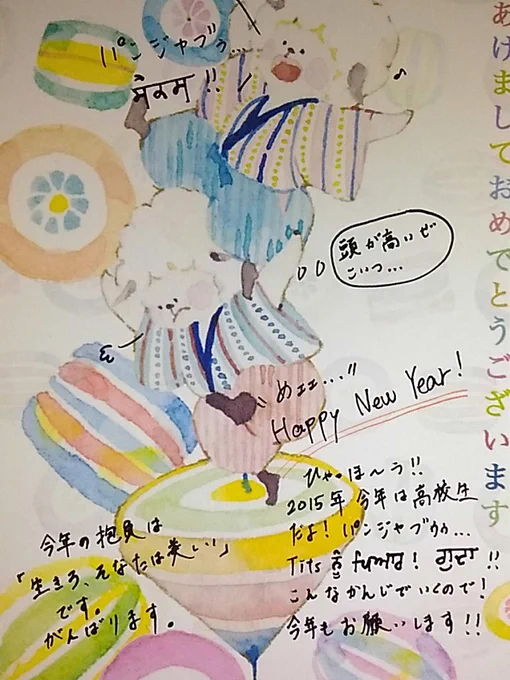 あけましておめでとうございます
パンジャブゥ…
!!
頭が高いぜ
こいつ…
めェェ…"
Happy New Year!
ひゃっほ〜う!!
2015年 今年は高校生
だよ! パンジャブゥゥ…
Tits
こんなかんじでいくので!
今年もお願いします!!
今年の抱負は
「生きろ、そなたは美しい」
です。
がんばります。